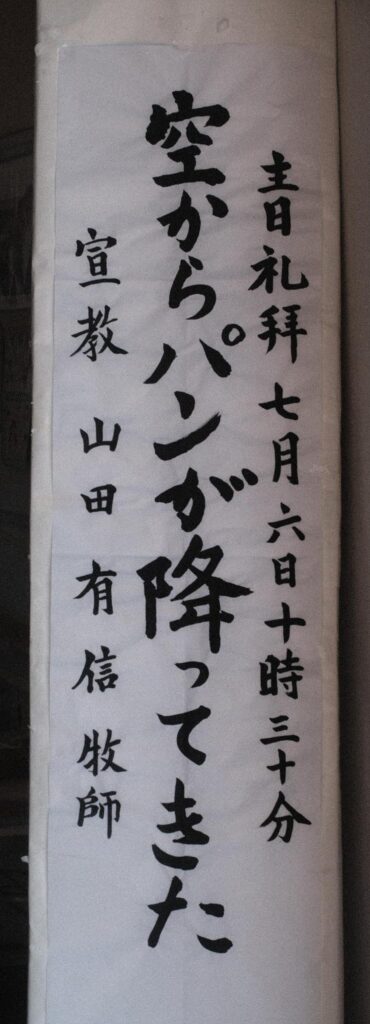 主日礼拝 七月六日十時三十分
空からパンが降ってきた
宣教 山田有信牧師